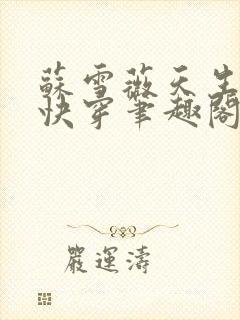 蘇雪薇天生
快穿筆趣閣
嚴運濤